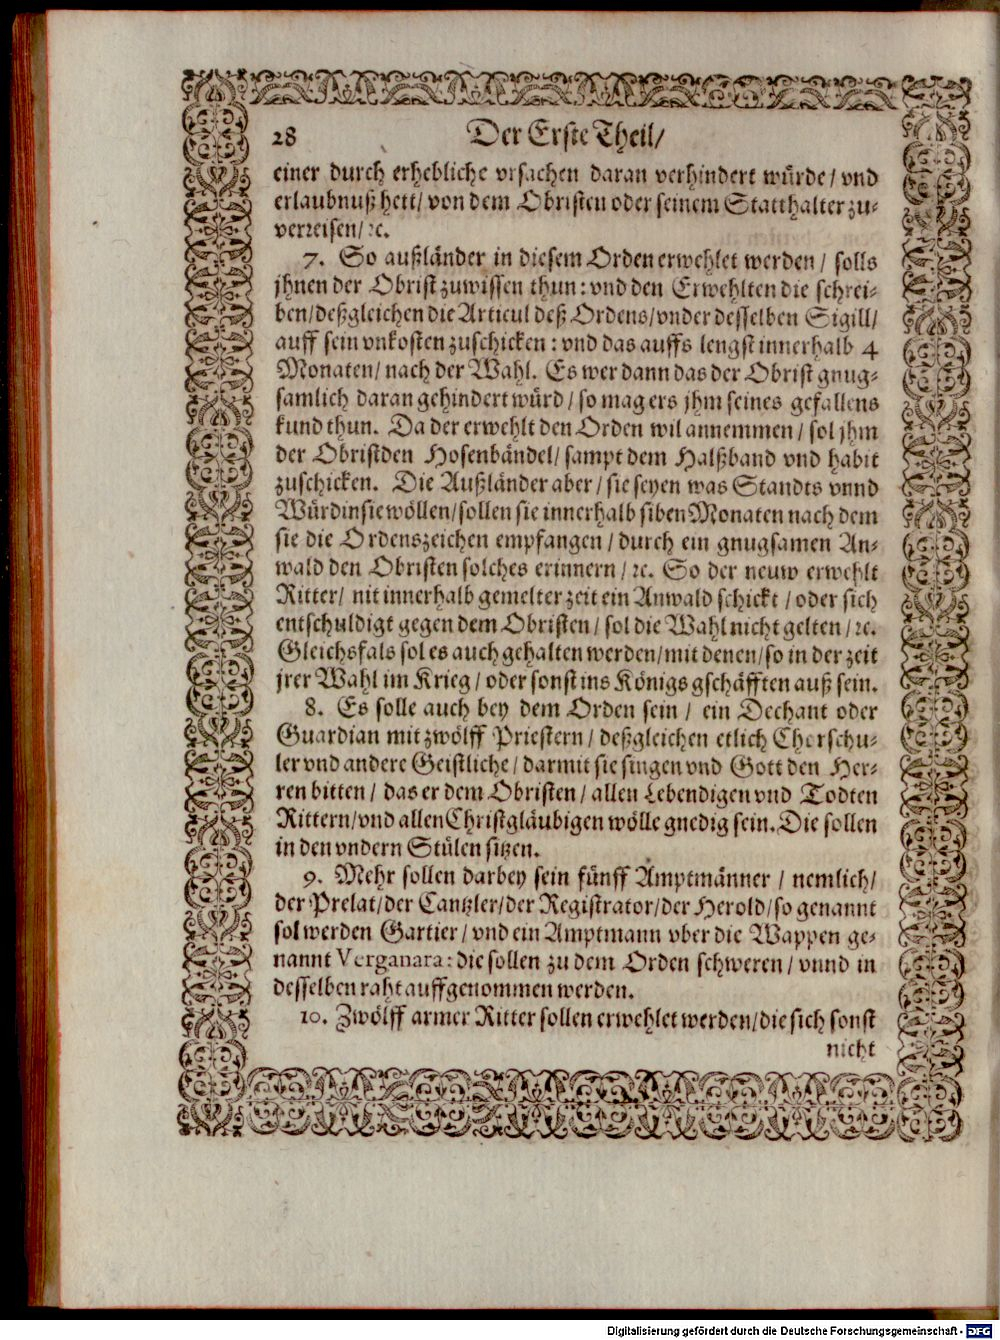 28 Der Erste Theil/
einer durch erhebliche vrsachen daran verhindert würde/ vnd
erlaubnuß hett/ von dem Obristen oder seinem Statthalter zu-
verreisen/ ꝛc.
7. So außländer in diesem Orden erwehlet werden/ solls
jhnen der Obrist zuwissen thun: vnd den Erwehlten die schrei-
ben/ deßgleichen die Articul deß Ordens/ vnder desselben Sigill/
auff sein vnkosten zuschicken: vnd das auffs lengst innerhalb 4
Monaten/ nach der Wahl. Es wer dann das der Obrist gnug-
samlich daran gehindert würd/ so mag ers jhm seines gefallens
kund thun. Da der erwehlt den Orden wil annemmen/ sol jhm
der Obrist den Hosenbändel/ sampt dem Halßband vnd habit
zuschicken. Die Außländer aber/ sie seyen was Standts vnnd
Würdin sie wöllen/ sollen sie innerhalb siben Monaten nach dem
sie die Ordenszeichen empfangen/ durch ein gnugsamen An-
wald den Obristen solches erinnern/ ꝛc. So der neuw erwehlt
Ritter/ nit innerhalb gemelter zeit ein Anwald schickt/ oder sich
entschuldigt gegen dem Obristen/ sol die Wahl nicht gelten/ ꝛc.
Gleichsfals sol es auch gehalten werden/ mit denen/ so in der zeit
jrer Wahl im Krieg/ oder sonst ins Königs gschäfften auß sein.
8. Es solle auch bey dem Orden sein/ ein Dechant oder
Guardian mit zwölff Priestern/ deßgleichen etlich Chorschu-
ler vnd andere Geistliche/ darmit sie singen vnd Gott den Her-
ren bitten/ das er dem Obristen/ allen Lebendigen vnd Todten
Rittern/ vnd allen Christgläubigen wölle gnedig sein. Die sollen
in den vndern Stülen sitzen.
9. Mehr sollen darbey sein fünff Amptmänner/ nemlich/
der Prelat/ der Cantzler/ der Registrator/ der Herold/ so genannt
sol werden Gartier/ vnd ein Amptmann vber die Wappen ge-
nannt Verganara: die sollen zu dem Orden schweren/ vnnd in
desselben raht auffgenommen werden.
10. Zwölff armer Ritter sollen erwehlet werden/ die sich sonst
nicht
Digitalisierung gefördert durch die Deutsche Forschungsgemeinschaft - DFG